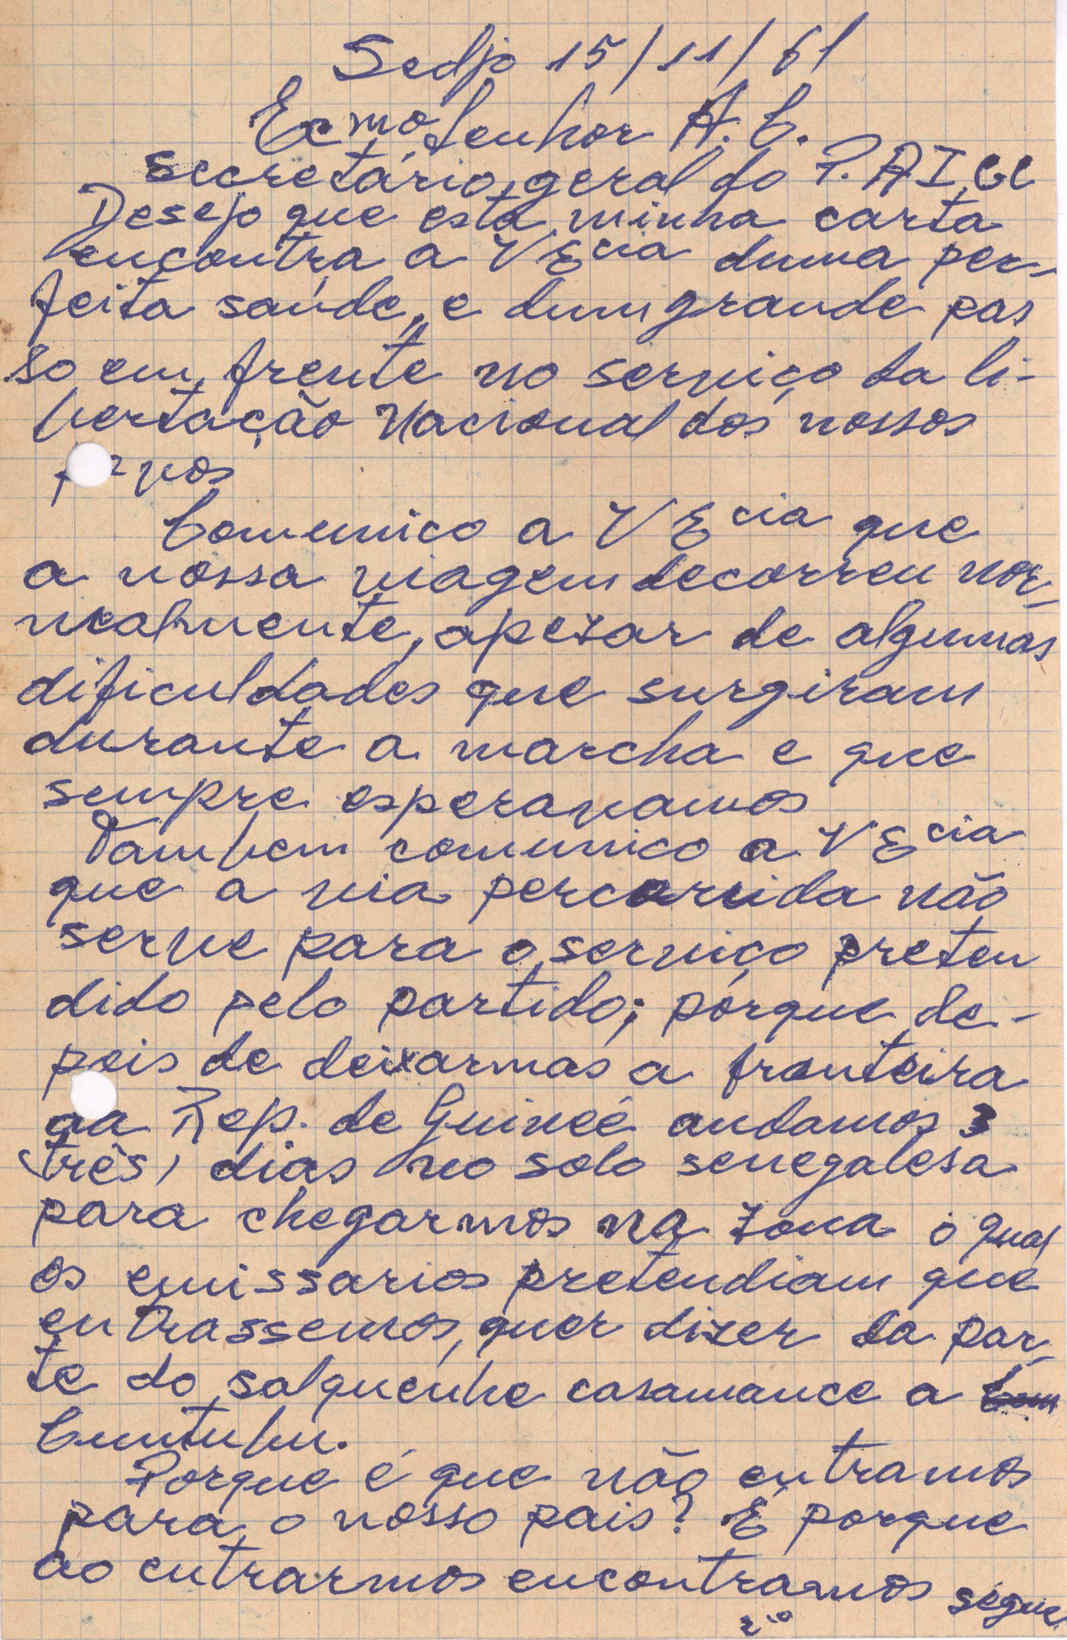 Sedjo 15/11/61
Ecmo Senhor A. C.
secretário geral do P.AIGC
Desejo que esta minha carta
encontra a V Ecia duma per-
feita saúde, e dum grande pas
so em frente no serviço da li-
bertação Nacional dos nossos
povos
Comunico a V Ecia que
a nossa viagem decorreu nor-
malmente, apezar de algumas
dificuldades que surgiram
durante a marcha e que
sempre esperavamos
Tambem comunico a V Ecia
que a via percorrida não
serve para o serviço preten
dido pelo partido; porque de-
pois de deixarmos a fronteira
da Rep. de Guineé andamos 3
três) dias no solo senegalesa
para chegarmos na zona o qual
os emissarios pretendiam que
entrassemos, quer dizer da par-
te do salquenhe casamance a
Cuntubu.
Porque é que não entramos
para o nosso pais? É porque
ao entrarmos encontramos segue